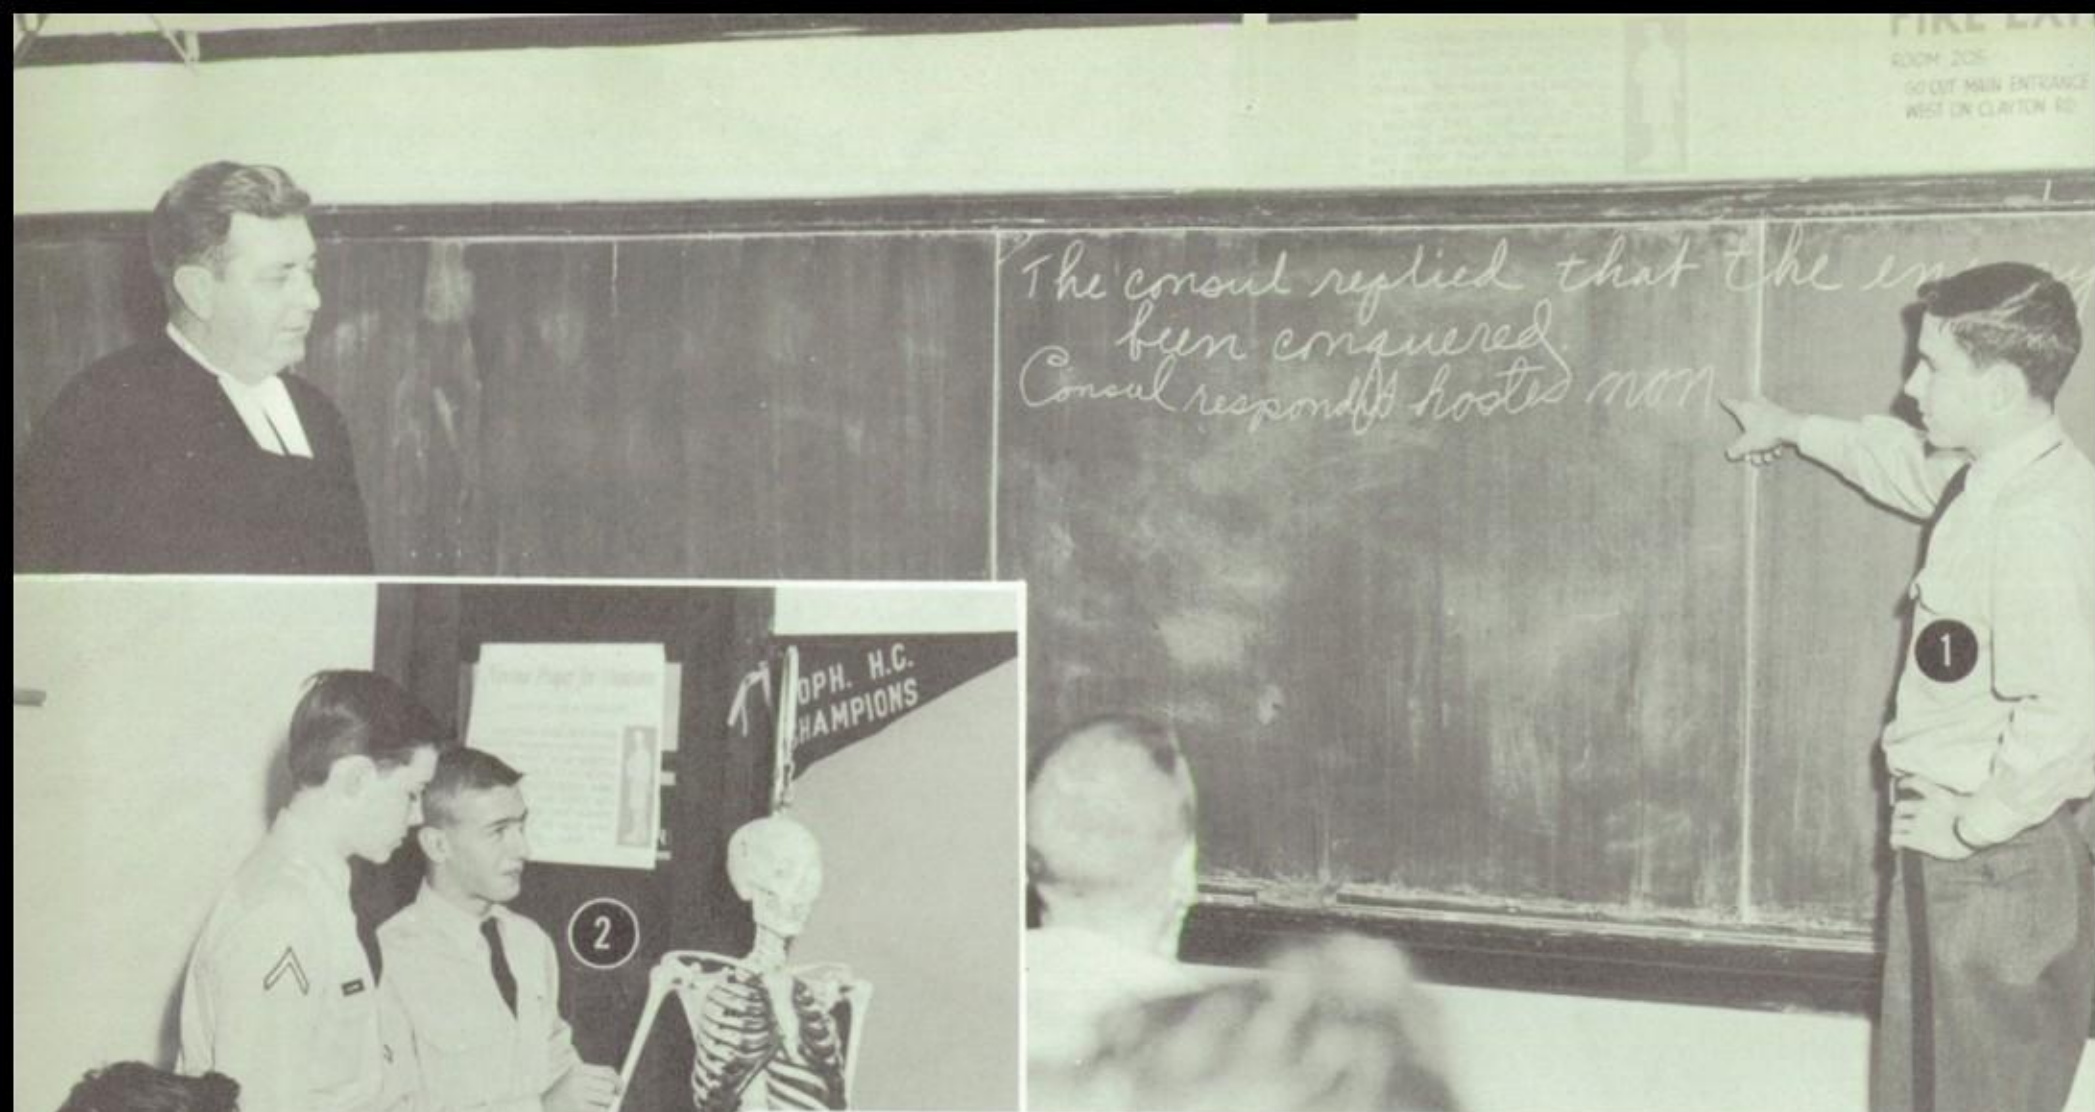 FIRE EXIT
ROOM 206
GO OUT MAIN ENTRANCE
WEST ON CLAYTON RD.
The consul replied that the enemy
been conquered.
Consul respondit hostes non
1
OPH. H.C.
HAMPIONS
2